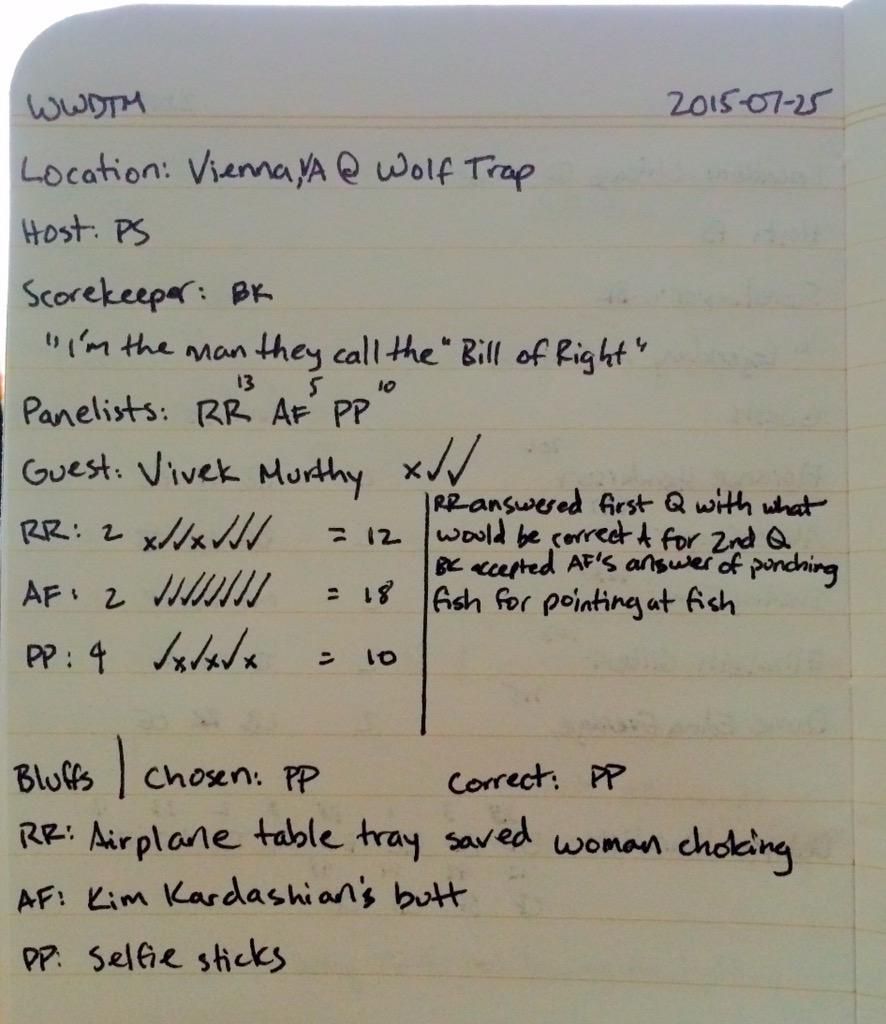 WWDTM 2015-07-25
Location: Vienna, VA @ Wolf Trap
Host: PS
Scorekeeper: BK
"I'm the man they call the "Bill of Right"
13 5 10
Panelists: RR AF PP
Guest: Vivek Murthy x✓✓
RR: 2 x✓✓x✓✓✓ = 12
AF: 2 ✓✓✓✓✓✓✓✓ = 18
PP: 4 ✓x✓x✓x = 10
RR answered first Q with what
would be correct A for 2nd Q
BK accepted AF's answer of punching
fish for pointing at fish
Bluffs | Chosen: PP Correct: PP
RR: Airplane table tray saved woman choking
AF: Kim Kardashian's butt
PP: Selfie sticks